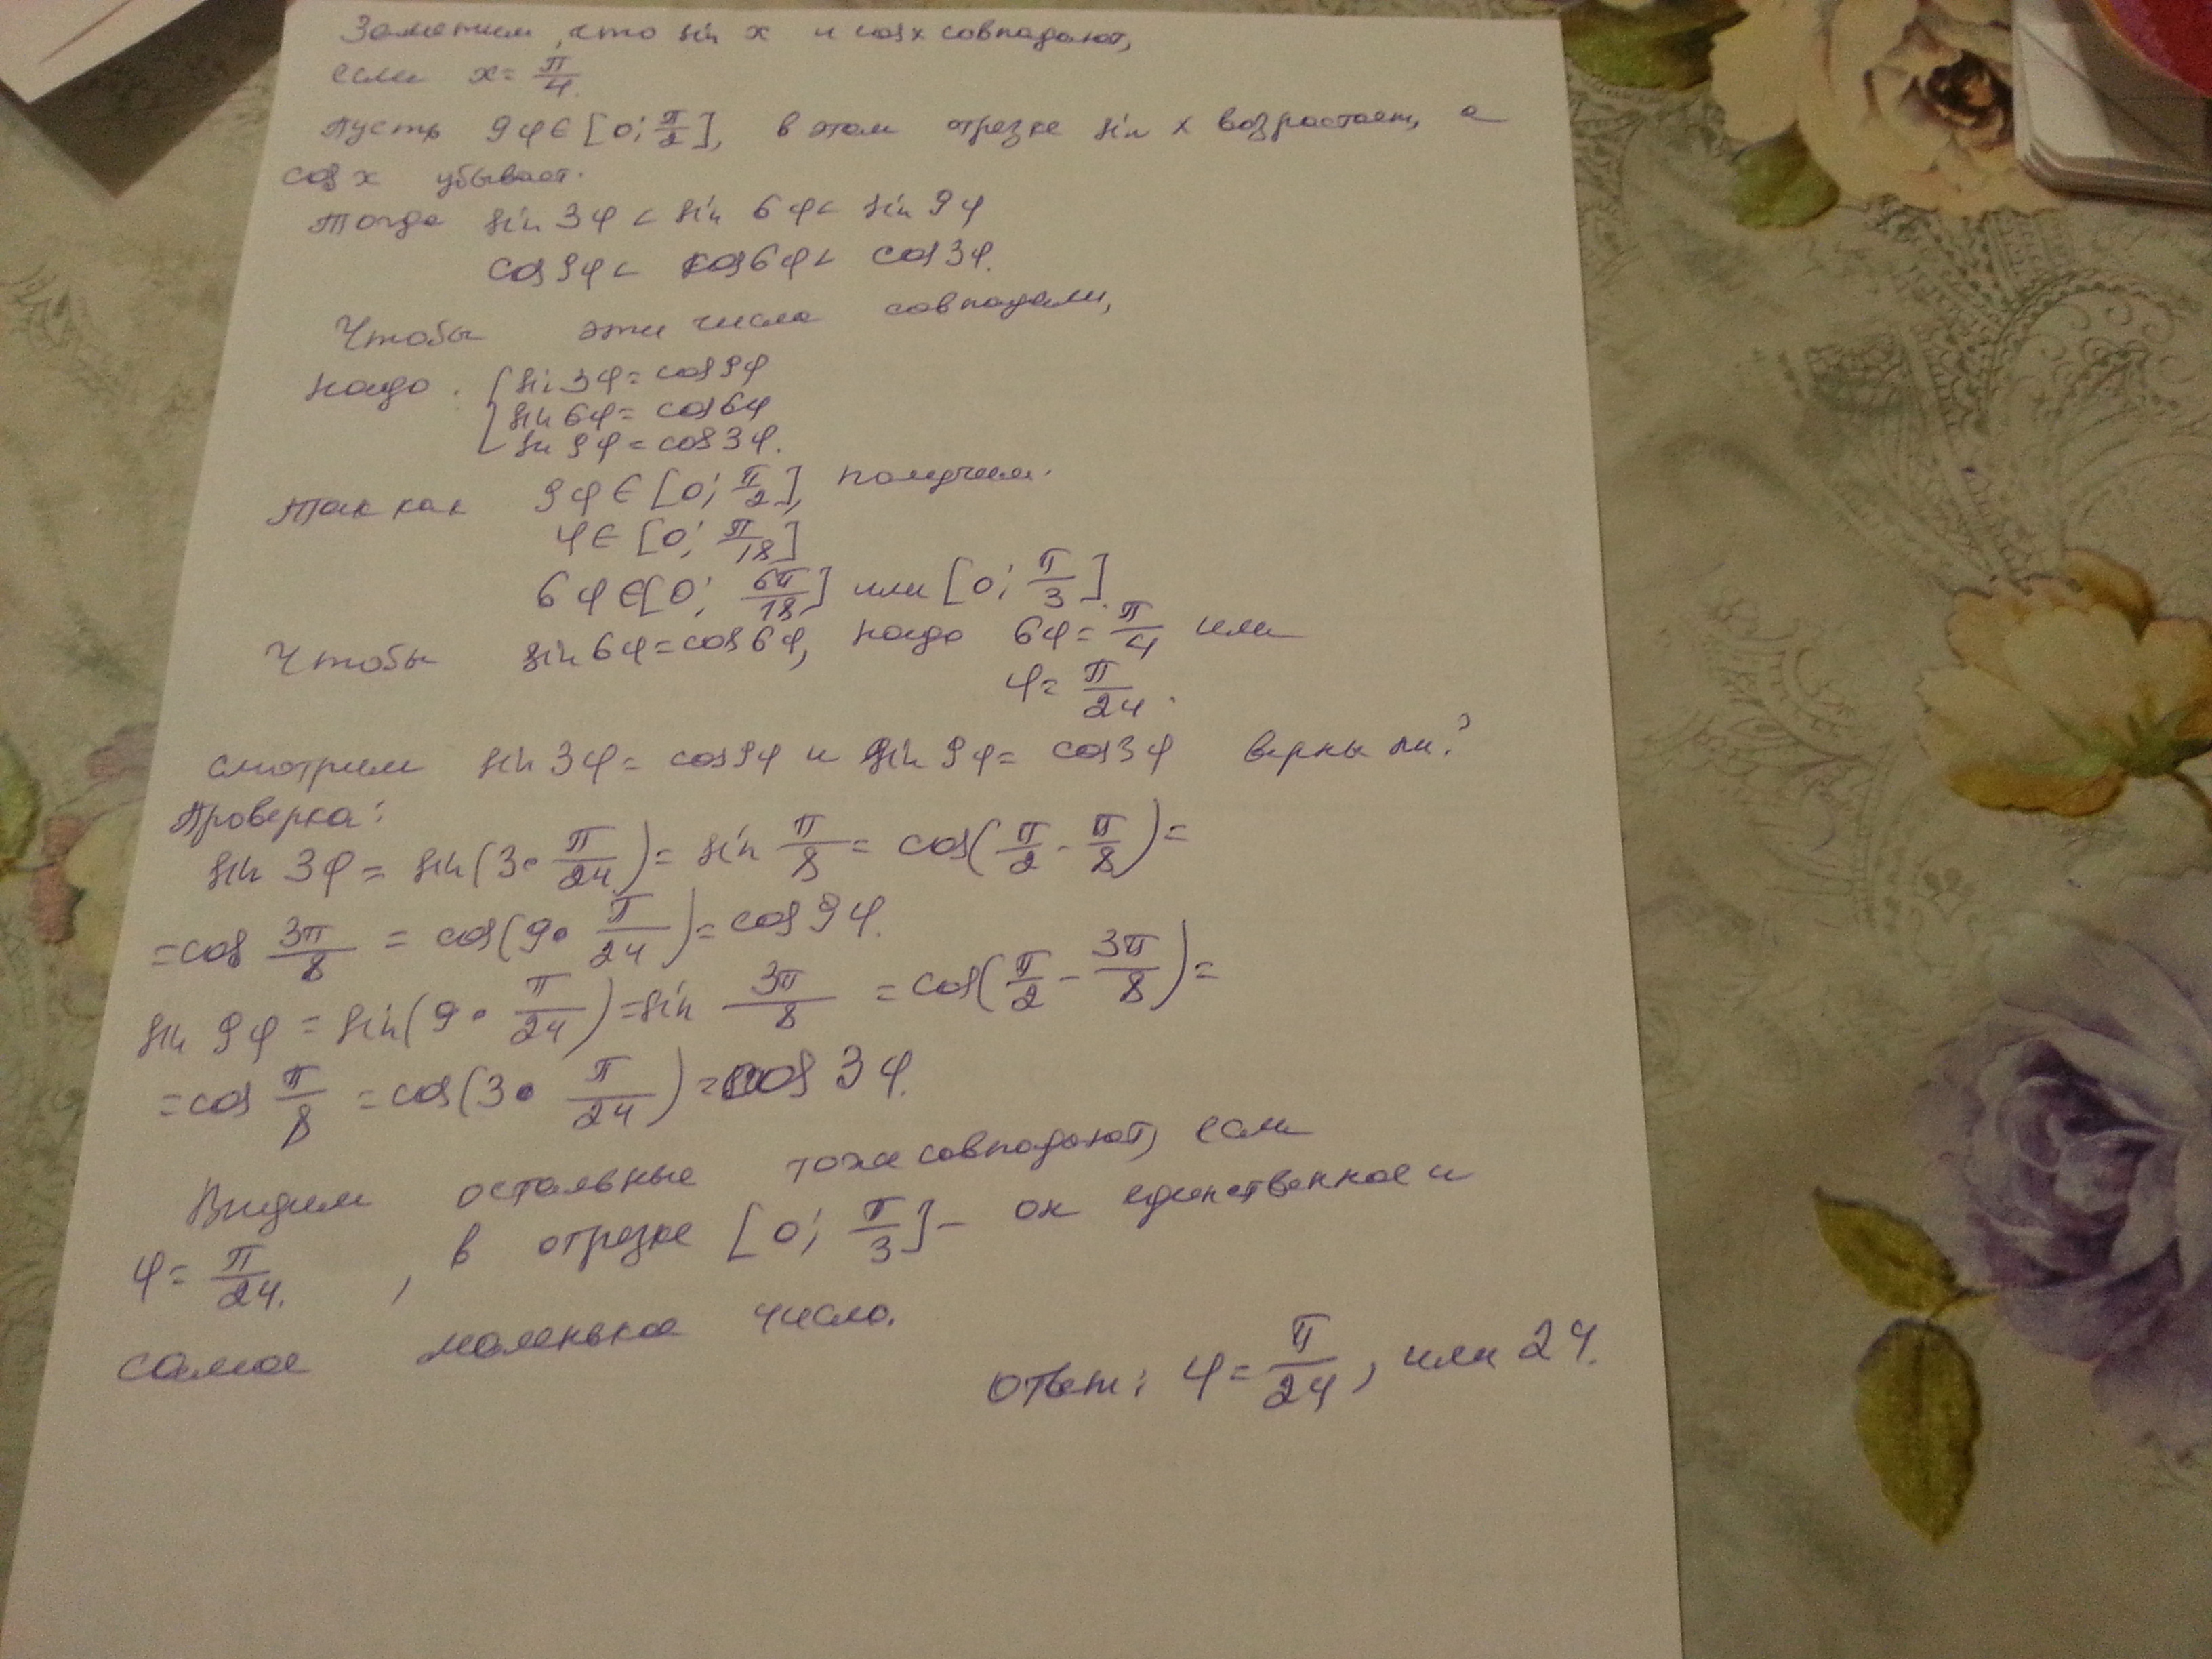 Заметим, что sin x и cos x совпадают,
если x = π/4.
Пусть 9φ ∈ [0; π/2], в этом отрезке sin x возрастает, а
cos x убывает.
Тогда sin 3φ < sin 6φ < sin 9φ
cos 9φ < cos 6φ < cos 3φ.
Чтобы эти числа совпадали,
надо. { sin 3φ = cos 9φ
sin 6φ = cos 6φ
sin 9φ = cos 3φ.
Так как 9φ ∈ [0; π/2], получим.
φ ∈ [0; π/18]
6φ ∈ [0; 6π/18] или [0; π/3].
Чтобы sin 6φ = cos 6φ, надо 6φ = π/4 или
φ = π/24.
Смотрим sin 3φ = cos 9φ и sin 9φ = cos 3φ верны ли?
Проверка:
sin 3φ = sin(3 • π/24) = sin π/8 = cos(π/2 - π/8) =
= cos 3π/8 = cos(9 • π/24) = cos 9φ.
sin 9φ = sin(9 • π/24) = sin 3π/8 = cos(π/2 - 3π/8) =
= cos π/8 = cos(3 • π/24) = cos 3φ.
Видим остальные тоже совпадают, если
φ = π/24. , в отрезке [0; π/3] - он единственное и
самое маленькое число.
Ответ: φ = π/24, или 24.